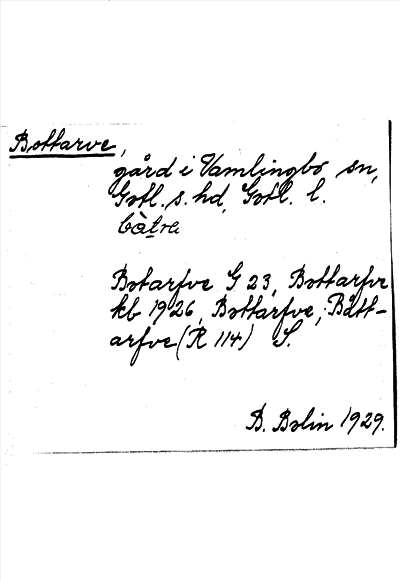 Bottarve,
gård i Vamlingbo sn,
Gotl. s. hd, Gotl. l.
bàtra
Botarfve G 23, Bottarfve
kb 1926, Bottarfve, Bått-
arfve (R 114) S.
B. Bolin 1929.